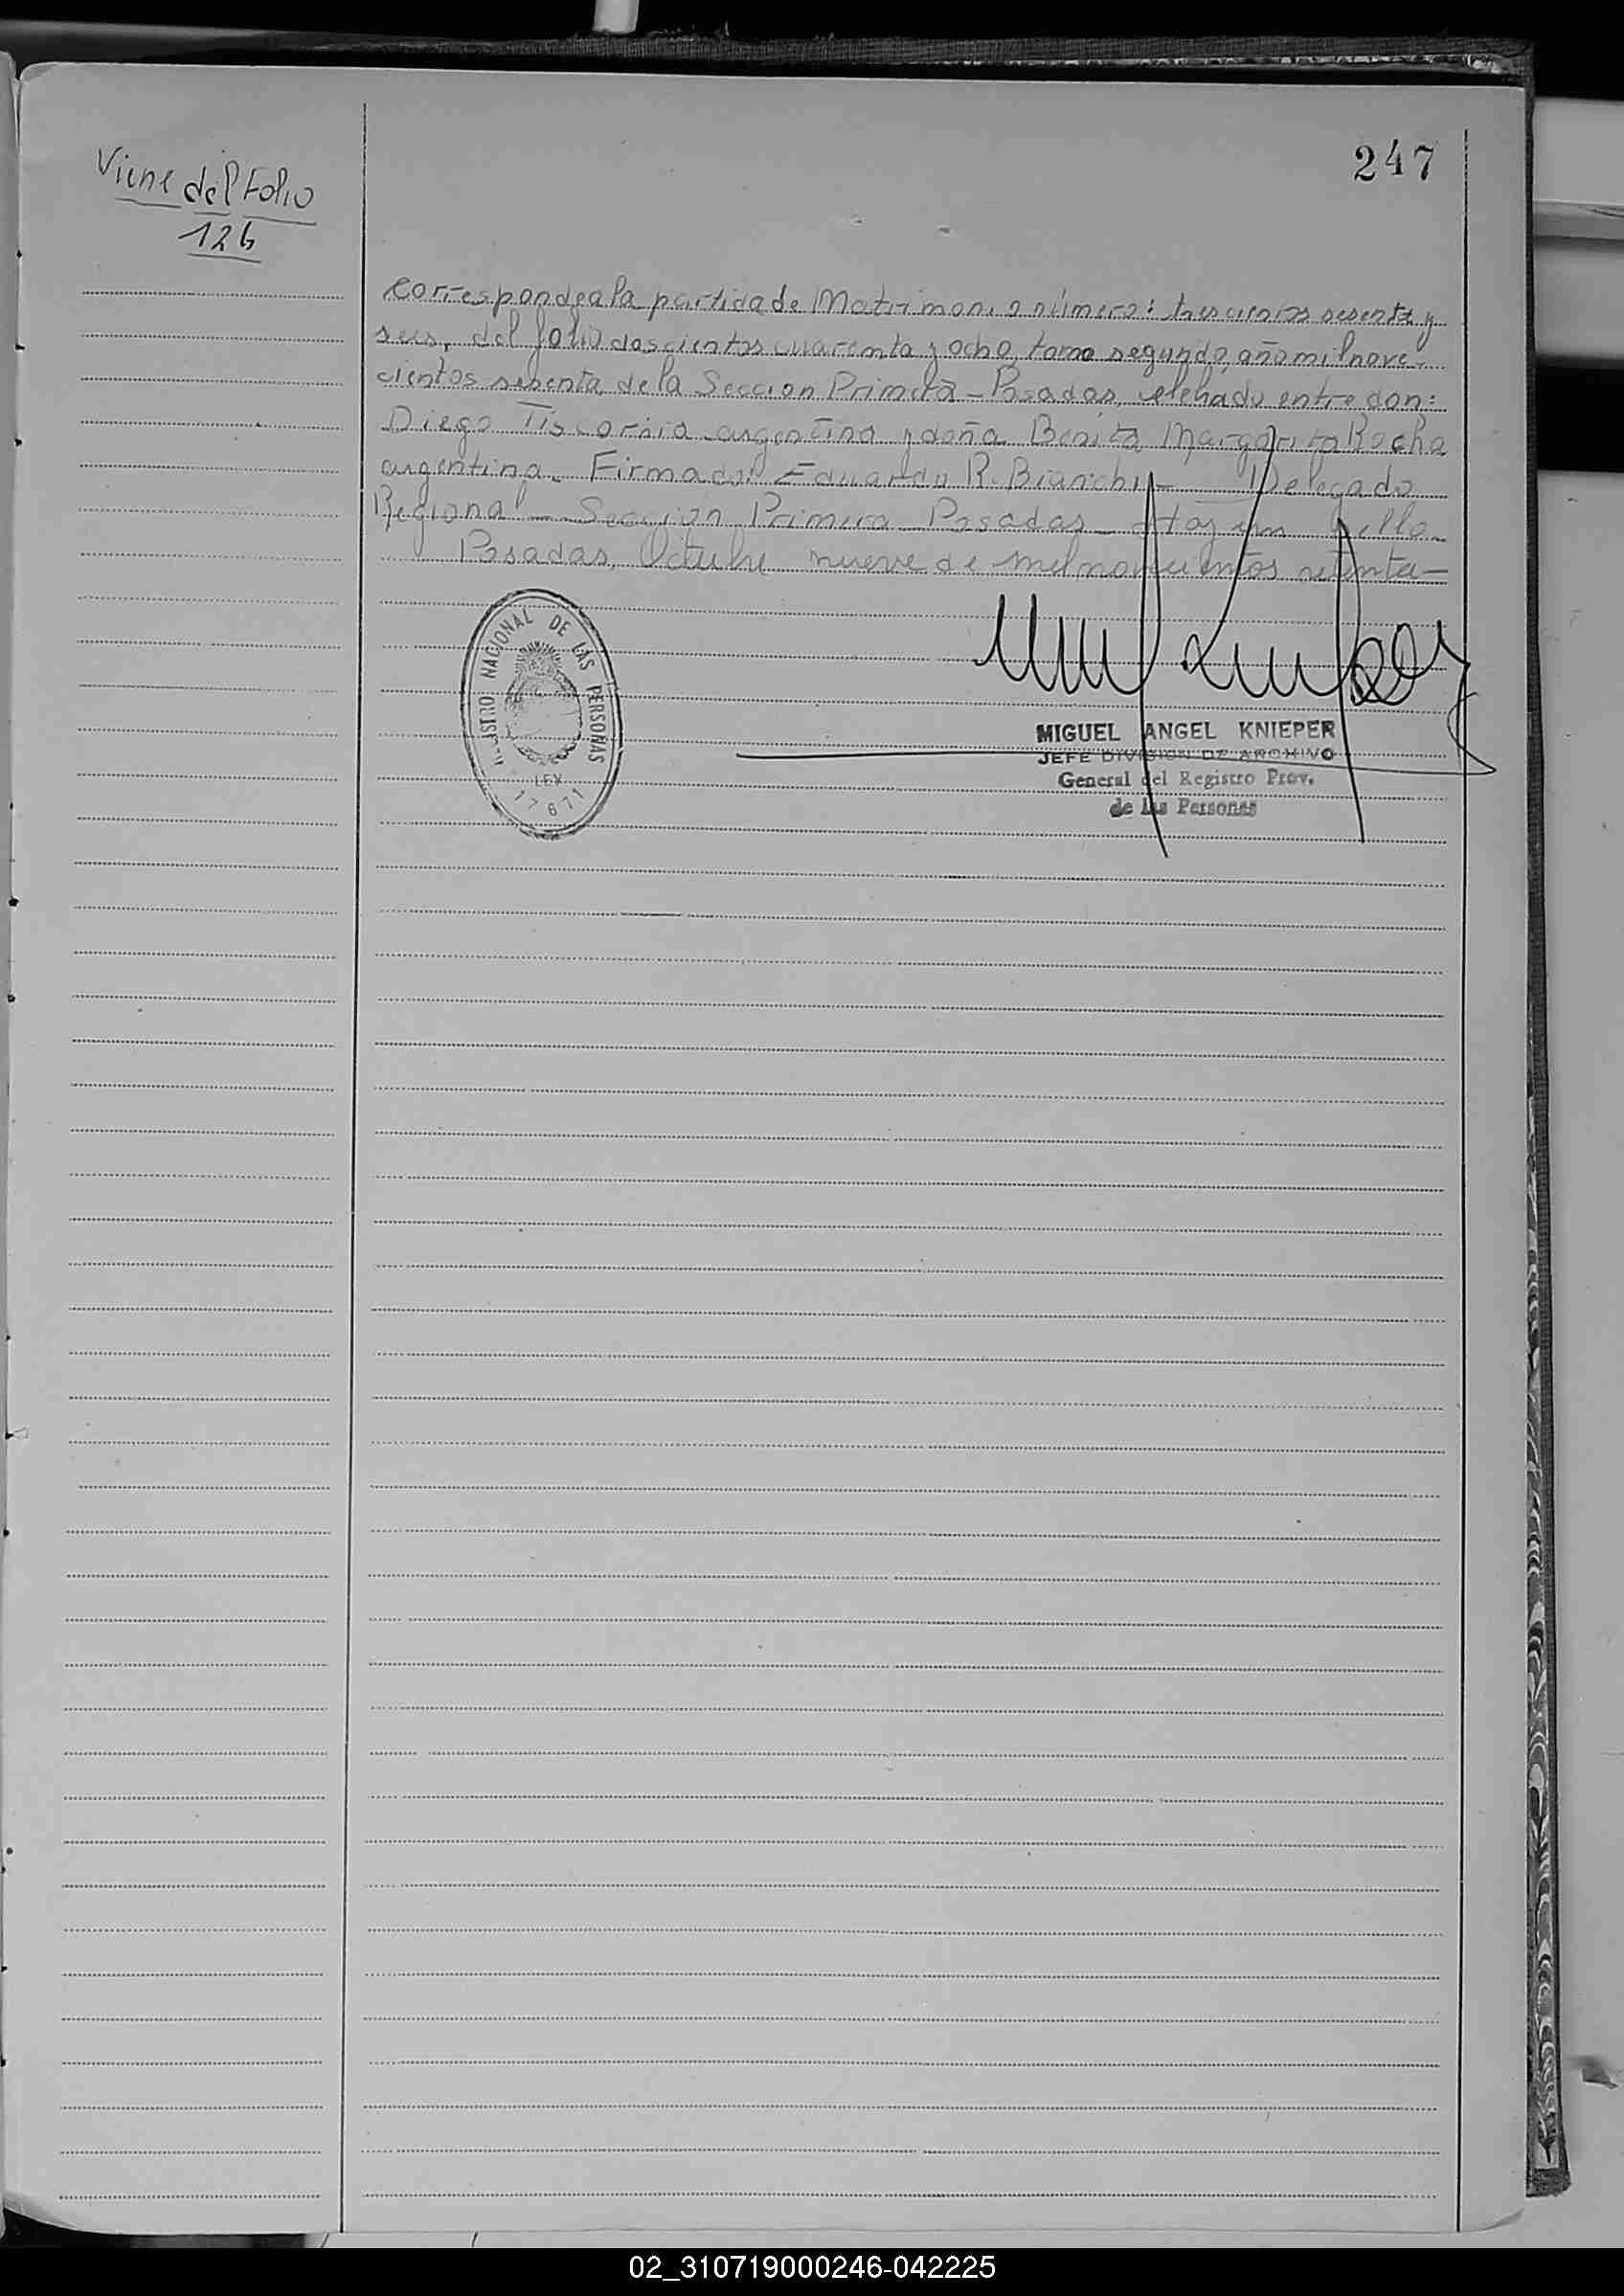 247
Viene del Folio
126
Corresponde a la partida de Matrimonio número: trescientos sesenta y
seis, del folio doscientos cuarenta y ocho, tomo segundo, año mil nove-
cientos setenta de la Seccion Primera - Posadas, celebrado entre don:
Diego Tiscornia argentino y doña Benita Margarita Rocha
argentina. Firmado: Eduardo R. Bianchi - Delegado
Regional - Sección Primera Posadas - Hay un sello.
Posadas, Octubre nueve de mil novecientos setenta -
REGISTRO NACIONAL DE LAS PERSONAS
LEY
17671
MIGUEL ANGEL KNIEPER
JEFE DIVISION DE ARCHIVO
General del Registro Prov.
de las Personas
02_310719000246-042225